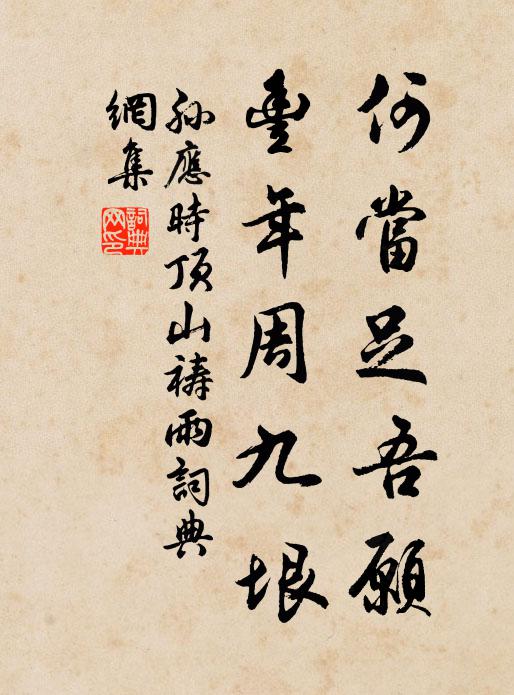 何當足吾願
豐年周九垠
孙應時頂山禱雨詞典
網集
詞典
网印